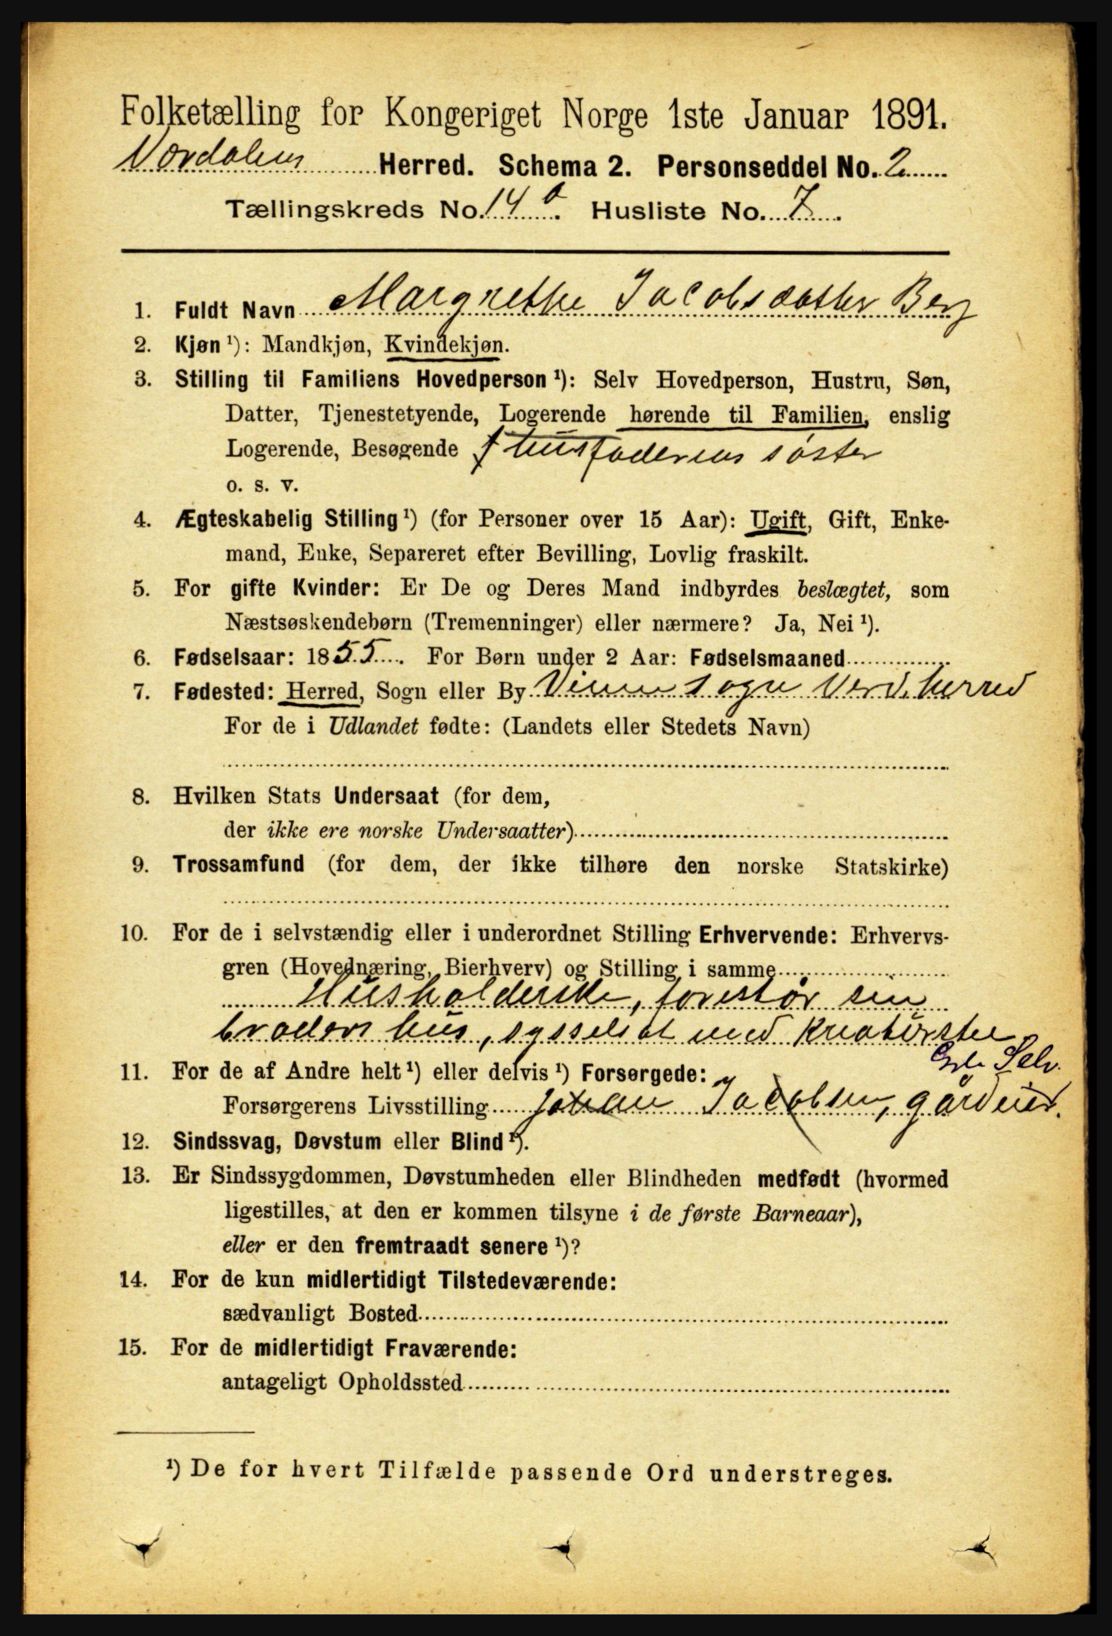 Folketælling for Kongeriget Norge 1ste Januar 1891.
Værdalens Herred. Schema 2. Personseddel No. 2
Tællingskreds No. 14 a. Husliste No. 7.
1. Fuldt Navn Margrethe Jacobsdatter Berg
2. Kjøn ¹): Mandkjøn, Kvindekjøn.
3. Stilling til Familiens Hovedperson ¹): Selv Hovedperson, Hustru, Søn,
Datter, Tjenestetyende, Logerende hørende til Familien, enslig
Logerende, Besøgende husfaderens søster
o. s. v.
4. Ægteskabelig Stilling ¹) (for Personer over 15 Aar): Ugift, Gift, Enke-
mand, Enke, Separeret efter Bevilling, Lovlig fraskilt.
5. For gifte Kvinder: Er De og Deres Mand indbyrdes beslægtet, som
Næstsøskendebørn (Tremenninger) eller nærmere? Ja, Nei ¹).
6. Fødselsaar: 1855. For Børn under 2 Aar: Fødselsmaaned
7. Fødested: Herred, Sogn eller By Vinne sogn Verd. herred
For de i Udlandet fødte: (Landets eller Stedets Navn)
8. Hvilken Stats Undersaat (for dem,
der ikke ere norske Undersaatter)
9. Trossamfund (for dem, der ikke tilhøre den norske Statskirke)
10. For de i selvstændig eller i underordnet Stilling Erhvervende: Erhvervs-
gren (Hovednæring, Bierhverv) og Stilling i samme
Husholderske, forestår sin
broders hus, sysselsat med kreaturstel
11. For de af Andre helt ¹) eller delvis ¹) Forsørgede: Selv.
Forsørgerens Livsstilling Johan Jacobsen, gårdeier.
12. Sindssvag, Døvstum eller Blind ¹).
13. Er Sindssygdommen, Døvstumheden eller Blindheden medfødt (hvormed
ligestilles, at den er kommen tilsyne i de første Barneaar),
eller er den fremtraadt senere ¹)?
14. For de kun midlertidigt Tilstedeværende:
sædvanligt Bosted
15. For de midlertidigt Fraværende:
antageligt Opholdssted
¹) De for hvert Tilfælde passende Ord understreges.